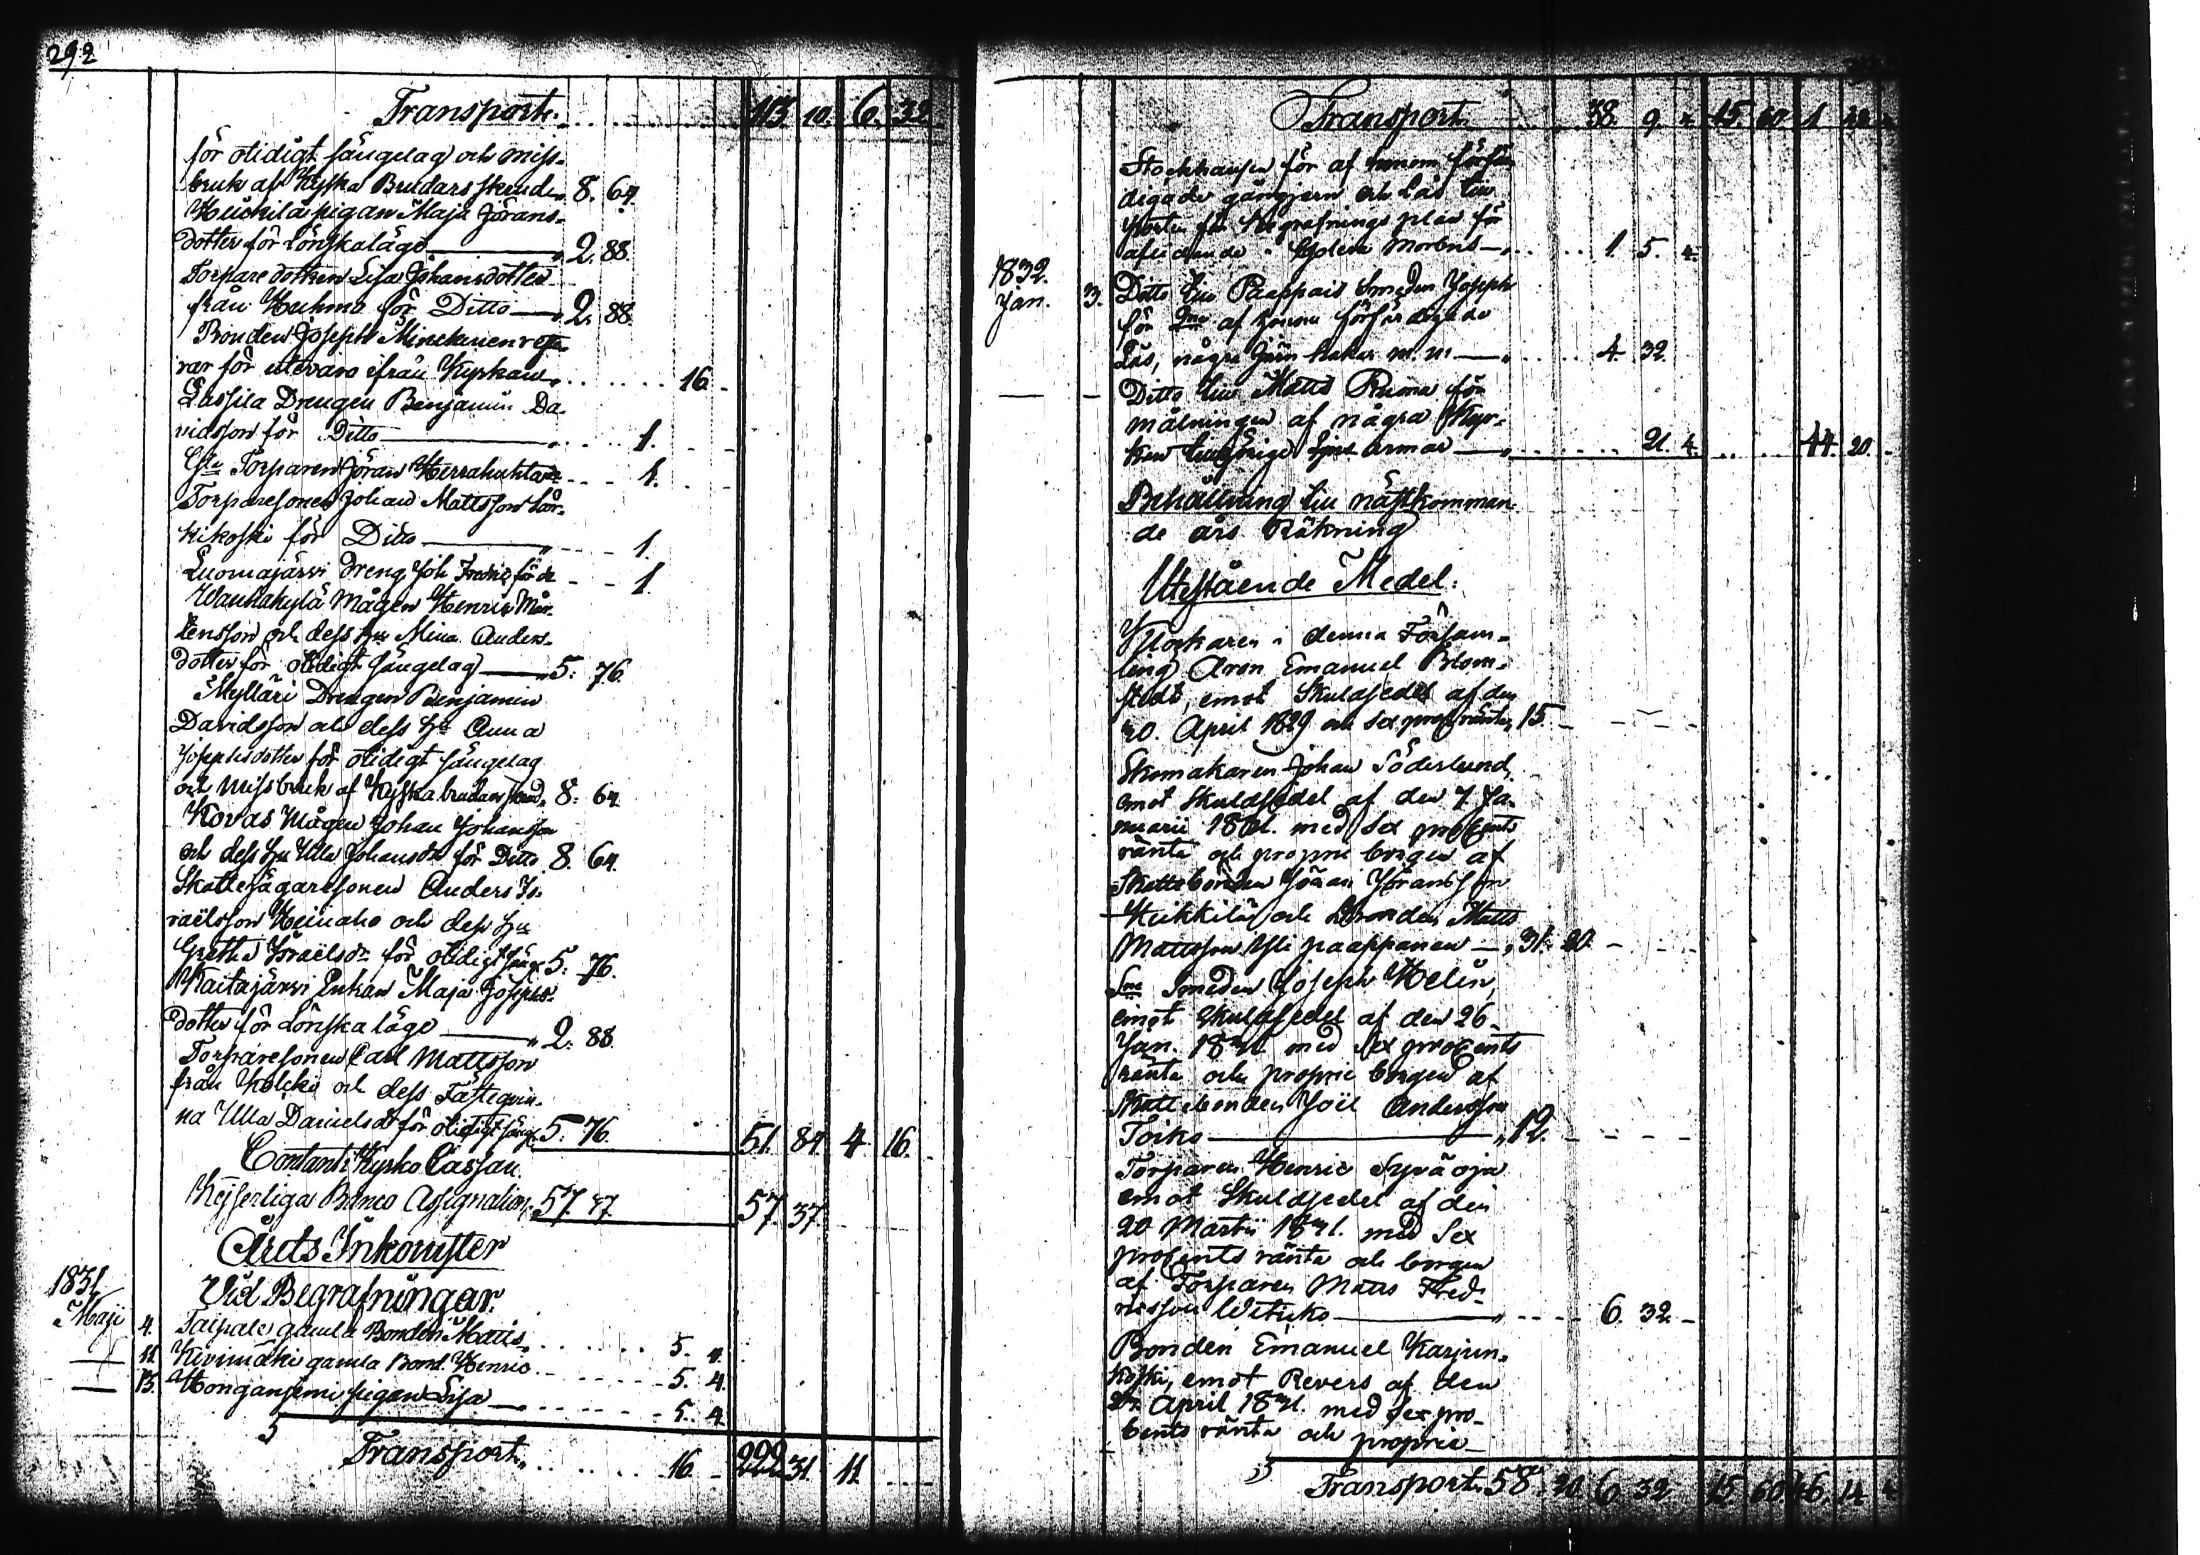 292
Transport. 113 10. 6. 32
för otidigt sängelag och miss-
bruk af Kyska Brudars skrud „ 8. 64.
Heickilä pigan Maja Jörans-
dotter för Lönskaläge „ 2. 88.
Torpare dottren Lisa Johansdotter
från Huhmo för Ditto „ 2. 88.
Bonden Joseph Minckinen
rar för utevaro ifrån Kyrkan „ 16.
Lassila Drengen Benjamin Da-
vidsson för Ditto „ 1.
Torparen Jöran 1.
Torparesonen Johan Mattsson
kikoski för Ditto „ 1.
Luomajärvi Dreng Joh Fredric för do 1.
Wanhakylä Mågen Henric Mår-
tensson och dess hu Mina Anders-
dotter för otidigt sängelag „ 5. 76.
Mylläri Drengen Benjamin
Davidsson och dess hu Anna
Josephsdotter för otidigt sängelag
och missbruk af Kyska brudars skrud „ 8. 64
Kovas Mågen Johan Johansson
och dess hu Ulla Johansdr för Ditto 8. 64.
Skattefägaresonen Anders Is-
raëlsson Heinaho och dess hu
Gretha Israëlsdr för otidigt säng. 5. 76.
Kaitajärvi Enkan Maja Josephs-
dotter för Lönskaläge „ 2. 88.
Torparesonen Carl Mattsson
från och dess Fästeqvin-
na Ulla Danielsdr för otidigt säng. 5. 76. 51. 84 4 16.
Contant i Kyrko Cassan
Kejserliga Banco Assignation 57 37. 57. 37.
Årets Inkomster
1831 Vid Begrafningar.
Maji 4. Taipale gamla Bonden Matts 5. 4.
— 11. Kivimäki gamla Bond. Henric 5. 4.
— 15. Honganjemi pigan Lisa 5. 4.
Transport. 16. 222 31 11.
Transport. 38. 9. 15. 60. 1
för af honom förfär
digade gångjern och Lås till
Porten för begrafnings plan för
afledande i Cholera Morbus „ 1. 5. 4.
1832.
Jan. 3. Ditto till Paappais Smeden Joseph
för af honom förfärdigade
Lås, några Järn hakar m. m. „ 4. 32.
— - Ditto till Matts för
målningen af några Kyr-
kan tillhörige ljus armar „ 21. 4. 44. 20.
Behållning till nästkomman-
de års Räkning
Utestående Medel:
Klockaren i denna Försam-
ling Aron Emanuel Blom-
stedt, emot Skuldsedel af den
20. April 1829 och Sex procs ränta „ 15.
Skomakaren Johan Söderlund,
emot Skuldsedel af den 7 Ja-
nuarii med Sex procents
ränta och proprie borgen af
Skattebonden Jöran Jöransson
Heikkilä och Bonden Matts
Mattsson Yli paappanen „ 31. 20.
Smeden Joseph Helin,
emot Skuldsedel af den 26
Jan. med Sex procents
ränta och proprie borgen af
Skattebonden Joël Andersson
Toiko „ 12.
Torparen Henric Syväoja
emot Skuldsedel af den
20 Martii med Sex
procents ränta och borgen
af Torparen Matts Fred-
ricsson „ 6. 32.
Bonden Emanuel Karjun-
koski, emot Revers af den
April med Sex pro-
cents ränta och proprie
Transport. 58. 20. 6. 32 15. 60 46. 14